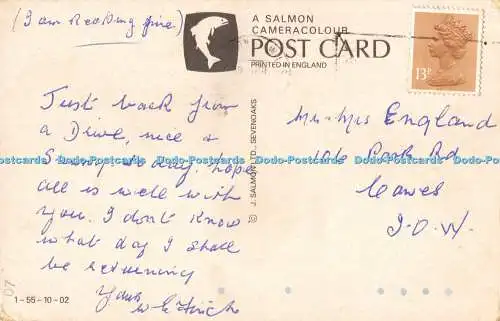 (I am Reading fine)
A SALMON
CAMERACOLOUR
POST CARD
PRINTED IN ENGLAND
13P
Just back from
a Drive, nice &
Sunny to day. hope
all is well with
you. I dont know
what day I shall
be returning
Yours
Mr & Mrs England
106 Park Rd
Cowes
I.O.W.
© J. SALMON LTD., SEVENOAKS
1-55-10-02
07
Dodo-Postcards Dodo-Postcards Dodo-Postcards Dodo-Postcards Dodo-Postcards Dodo-Postcards